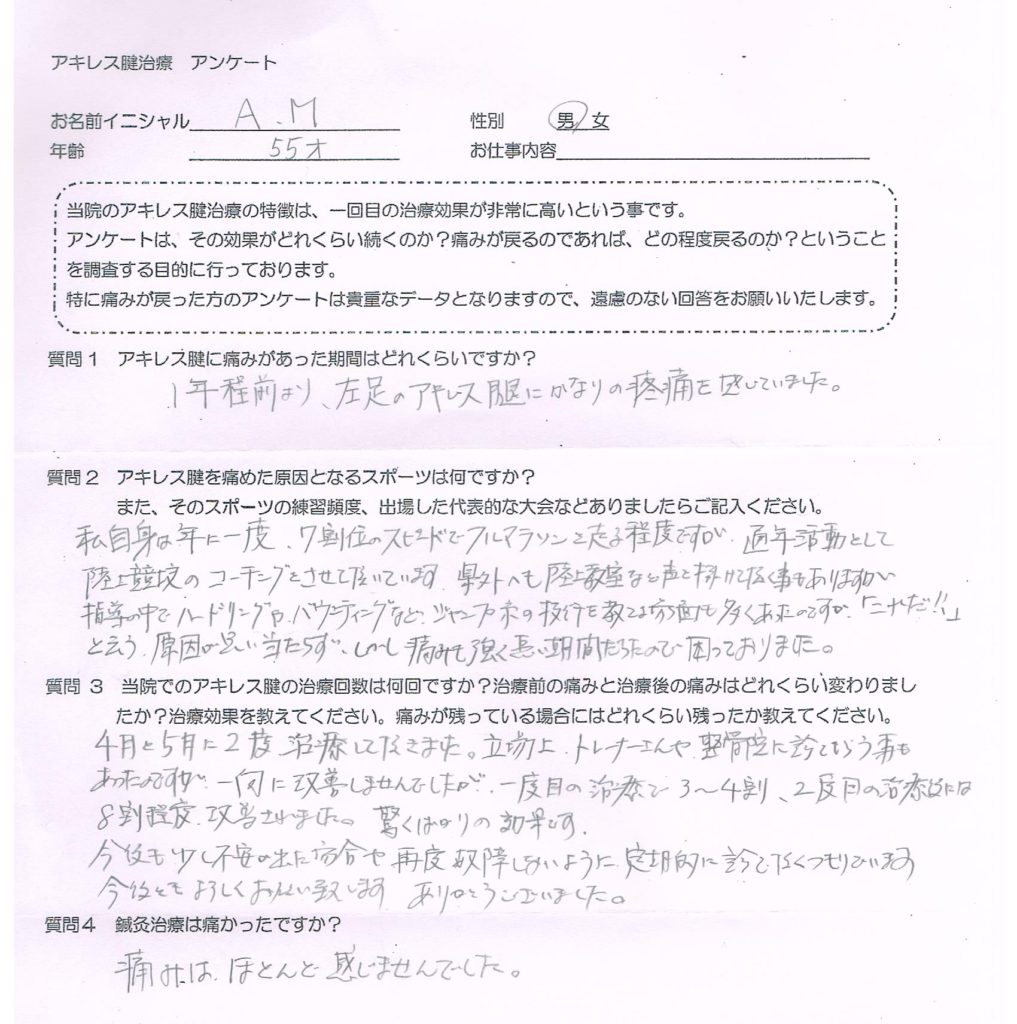 アキレス腱治療 アンケート
お名前イニシャル A.M 性別 男 女
年齢 55才 お仕事内容
当院のアキレス腱治療の特徴は、一回目の治療効果が非常に高いという事です。
アンケートは、その効果がどれくらい続くのか？痛みが戻るのであれば、どの程度戻るのか？ということ
を調査する目的に行っております。
特に痛みが戻った方のアンケートは貴重なデータとなりますので、遠慮のない回答をお願いいたします。
質問１ アキレス腱に痛みがあった期間はどれくらいですか？
1年程前より、左足のアキレス腱にかなりの疼痛を感じていました。
質問２ アキレス腱を痛めた原因となるスポーツは何ですか？
また、そのスポーツの練習頻度、出場した代表的な大会などありましたらご記入ください。
私自身は年に一度、7割位のスピードでフルマラソンを走る程度ですが、通年活動として
陸上競技のコーチングをさせて頂いています。県外へも陸上教室など声を掛けて頂く事もありますが
指導の中でハードリングや、バウンディングなど、ジャンプ系の技術を教える場面も多くあったのですが、「これだ!!」
と言う、原因が思い当たらず、しかし痛みも強く長い期間だったので困っておりました。
質問 ３ 当院でのアキレス腱の治療回数は何回ですか？治療前の痛みと治療後の痛みはどれくらい変わりまし
たか？治療効果を教えてください。痛みが残っている場合にはどれくらい残ったか教えてください。
4月と5月に2度治療して頂きました。立場上、トレーナーさんや整骨院に診てもらう事も
あったのですが、一向に改善しませんでしたが、一度目の治療で3～4割、2度目の治療後には
8割程度、改善されました。驚くばかりの効果です。
今後も少し不安が出た場合や再度故障しないように、定期的に診て頂くつもりでいます
今後ともよろしくお願い致します ありがとうございました。
質問４ 鍼灸治療は痛かったですか？
痛みは、ほとんど感じませんでした。